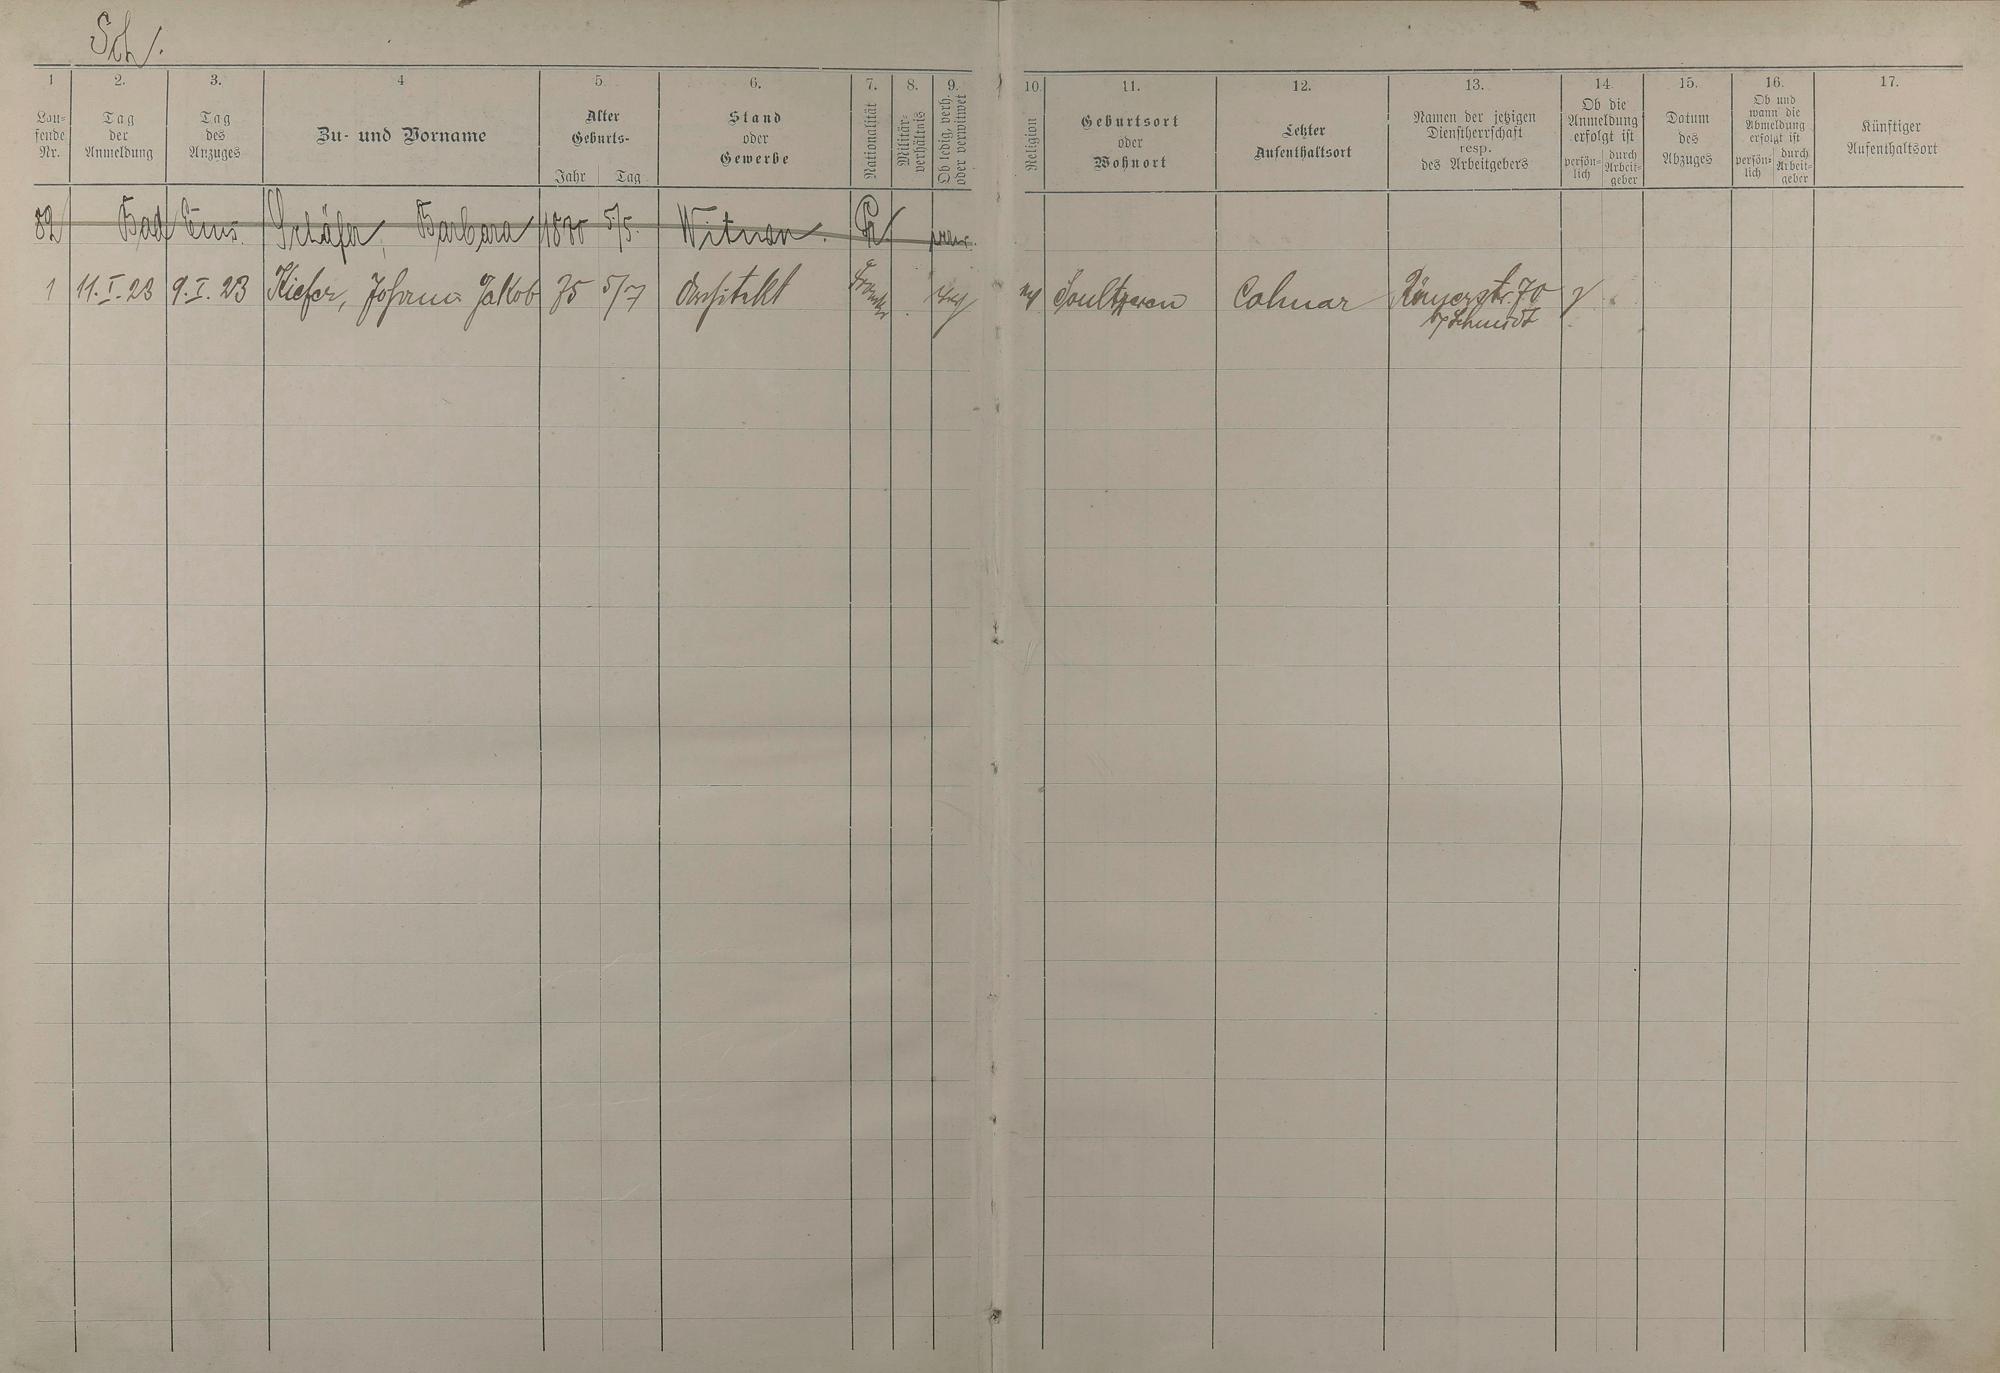 Sch.
1 2. 3. 4 5. 6. 7. 8. 9. 10. 11. 12. 13. 14. 15. 16. 17.
Lau-
fende
Nr.
Tag
der
Anmeldung
Tag
des
Anzuges
Zu- und Vorname
Alter
Geburts-
Jahr Tag
Stand
oder
Gewerbe
Nationalität
Militär-
verhältnis
Ob ledig, verh.
oder verwitwet
Religion
Geburtsort
oder
Wohnort
Letzter
Aufenthaltsort
Namen der jetzigen
Dienstherrschaft
resp.
des Arbeitgebers
Ob die
Anmeldung
erfolgt ist
persön-
lich
durch
Arbeit-
geber
Datum
des
Abzuges
Ob und
wann die
Abmeldung
erfolgt ist
persön-
lich
durch
Arbeit-
geber
Künftiger
Aufenthaltsort
82 Bad Ems. Schäfer, Barbara 1870 5/5. Witwe. Pr.
1 11.I.23 9.I.23 Kiefer, Johann Jakob 75 5/7 Architekt Soultzeren Colmar Römerstr. 70
b/ Schmidt